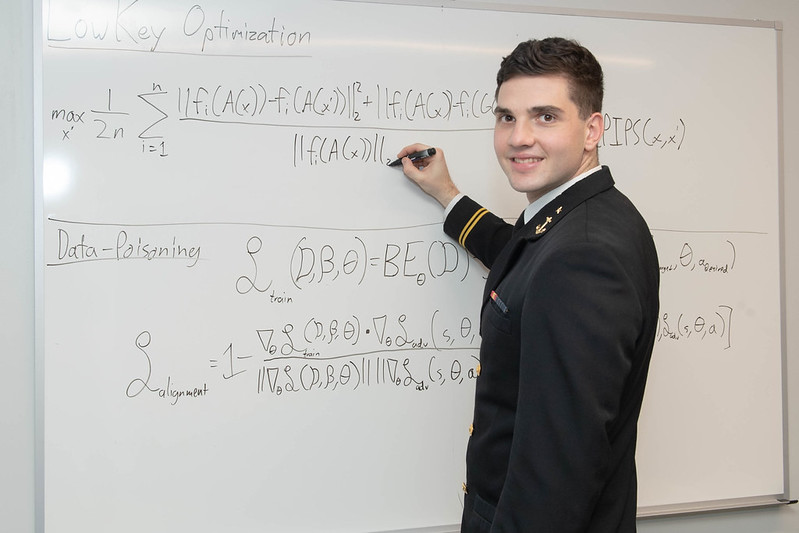 LowKey Optimization
max x' 1/2n Σ i=1 n ||fi(A(x))-fi(A(x'))||₂²+||fi(A(x)-fi(G PIPS(x,x')
||fi(A(x))||₂
Data-Poisoning
ℒtrain (D,β,θ)=BEθ(D) θ, a desired)
ℒalignment =1- ∇θℒtrain(D,β,θ)·∇θℒadv(s,θ, ),ℒadv(s,θ,a)]
||∇θℒ(D,β,θ)|| ||∇θℒadv(s,θ,a